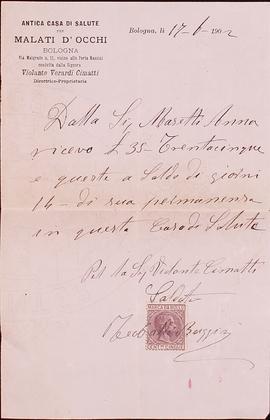 ANTICA CASA DI SALUTE
PER
MALATI D'OCCHI
BOLOGNA
Via Malgrado n. 11, vicino alla Porta Mazzini
condotta dalla Signora
Violante Verardi Cimatti
Direttrice-Proprietaria
Bologna, li 17-6-1902
Dalla Sig Masetti Anna
ricevo £ 35 Trentacinque
e queste a Saldo di giorni
14 - di sua permanenza
in questa Casa di Salute
Per la Sig Violante Cimatti
Saldato
MARCA DA BOLLO
CENT. MI CINQUE